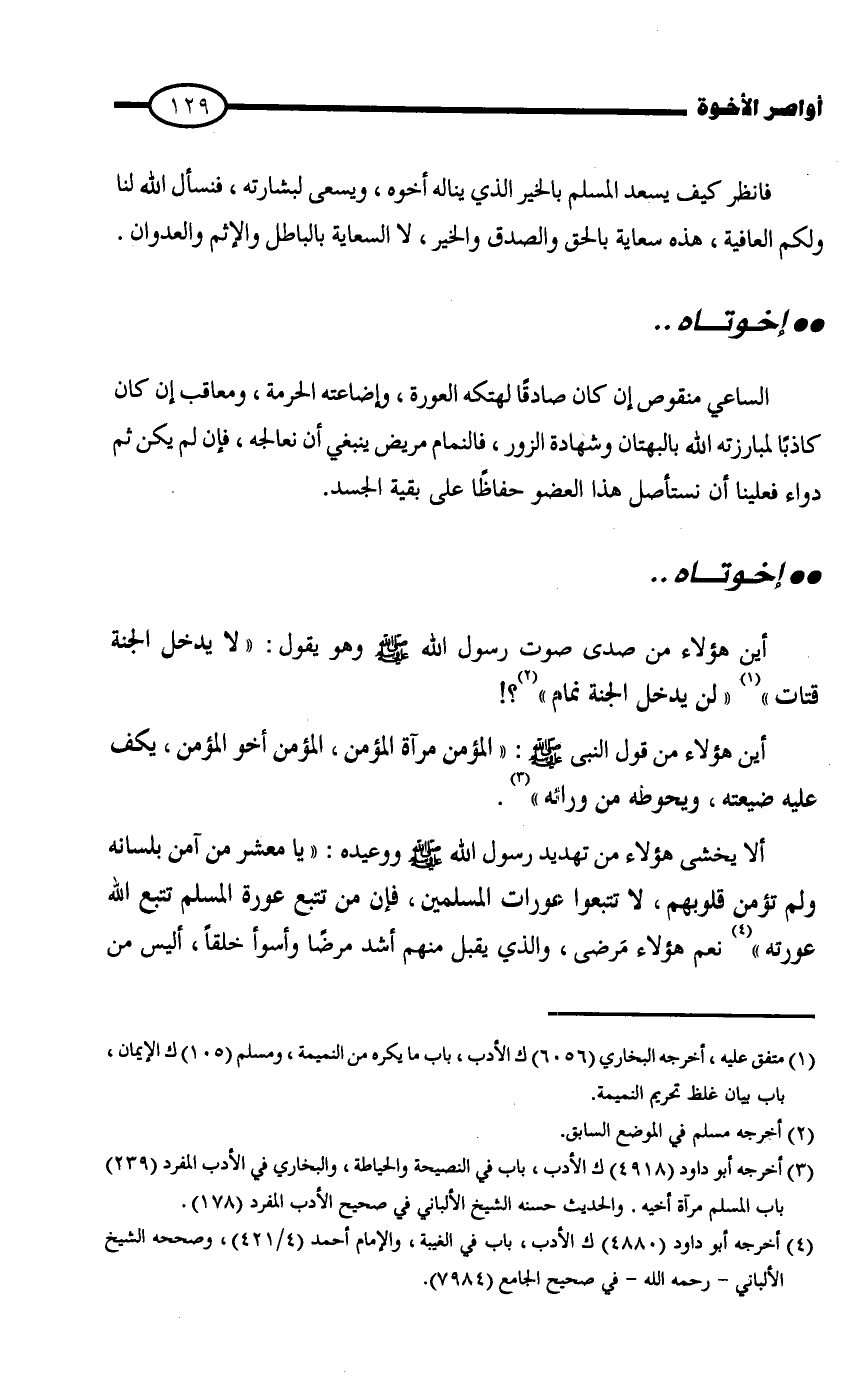 أواصر الأخوة ١٢٩
فانظر كيف يسعد المسلم بالخير الذي يناله أخوه ، ويسعى لبشارته ، فنسأل الله لنا
ولكم العافية ، هذه سعاية بالحق والصدق والخير ، لا السعاية بالباطل والإثم والعدوان .
●● إخـوتـــاه ..
الساعي منقوص إن كان صادقًا لهتكه العورة ، وإضاعته الحرمة ، ومعاقب إن كان
كاذبًا لمبارزته الله بالبهتان وشهادة الزور ، فالنمام مريض ينبغي أن نعالجه ، فإن لم يكن ثم
دواء فعلينا أن نستأصل هذا العضو حفاظًا على بقية الجسد.
●● إخـوتـــاه ..
أين هؤلاء من صدى صوت رسول الله ﷺ وهو يقول : « لا يدخل الجنة
قتات »(١) « لن يدخل الجنة نمام »(٢)؟!
أين هؤلاء من قول النبى ﷺ : « المؤمن مرآة المؤمن ، المؤمن أخو المؤمن ، يكف
عليه ضيعته ، ويحوطه من ورائه »(٣) .
ألا يخشى هؤلاء من تهديد رسول الله ﷺ ووعيده : « يا معشر من آمن بلسانه
ولم تؤمن قلوبهم ، لا تتبعوا عورات المسلمين ، فإن من تتبع عورة المسلم تتبع الله
عورته »(٤) نعم هؤلاء مَرضى ، والذي يقبل منهم أشد مرضًا وأسوأ خلقاً ، أليس من
(١) متفق عليه ، أخرجه البخاري (٦٠٥٦) ك الأدب ، باب ما يكره من النميمة ، ومسلم (١٠٥) ك الإيمان ،
باب بيان غلظ تحريم النميمة.
(٢) أخرجه مسلم في الموضع السابق.
(٣) أخرجه أبو داود (٤٩١٨) ك الأدب ، باب في النصيحة والحياطة ، والبخاري في الأدب المفرد (٢٣٩)
باب المسلم مرآة أخيه . والحديث حسنه الشيخ الألباني في صحيح الأدب المفرد (١٧٨) .
(٤) أخرجه أبو داود (٤٨٨٠) ك الأدب ، باب في الغيبة ، والإمام أحمد (٤٢١/٤) ، وصححه الشيخ
الألباني – رحمه الله – في صحيح الجامع (٧٩٨٤).